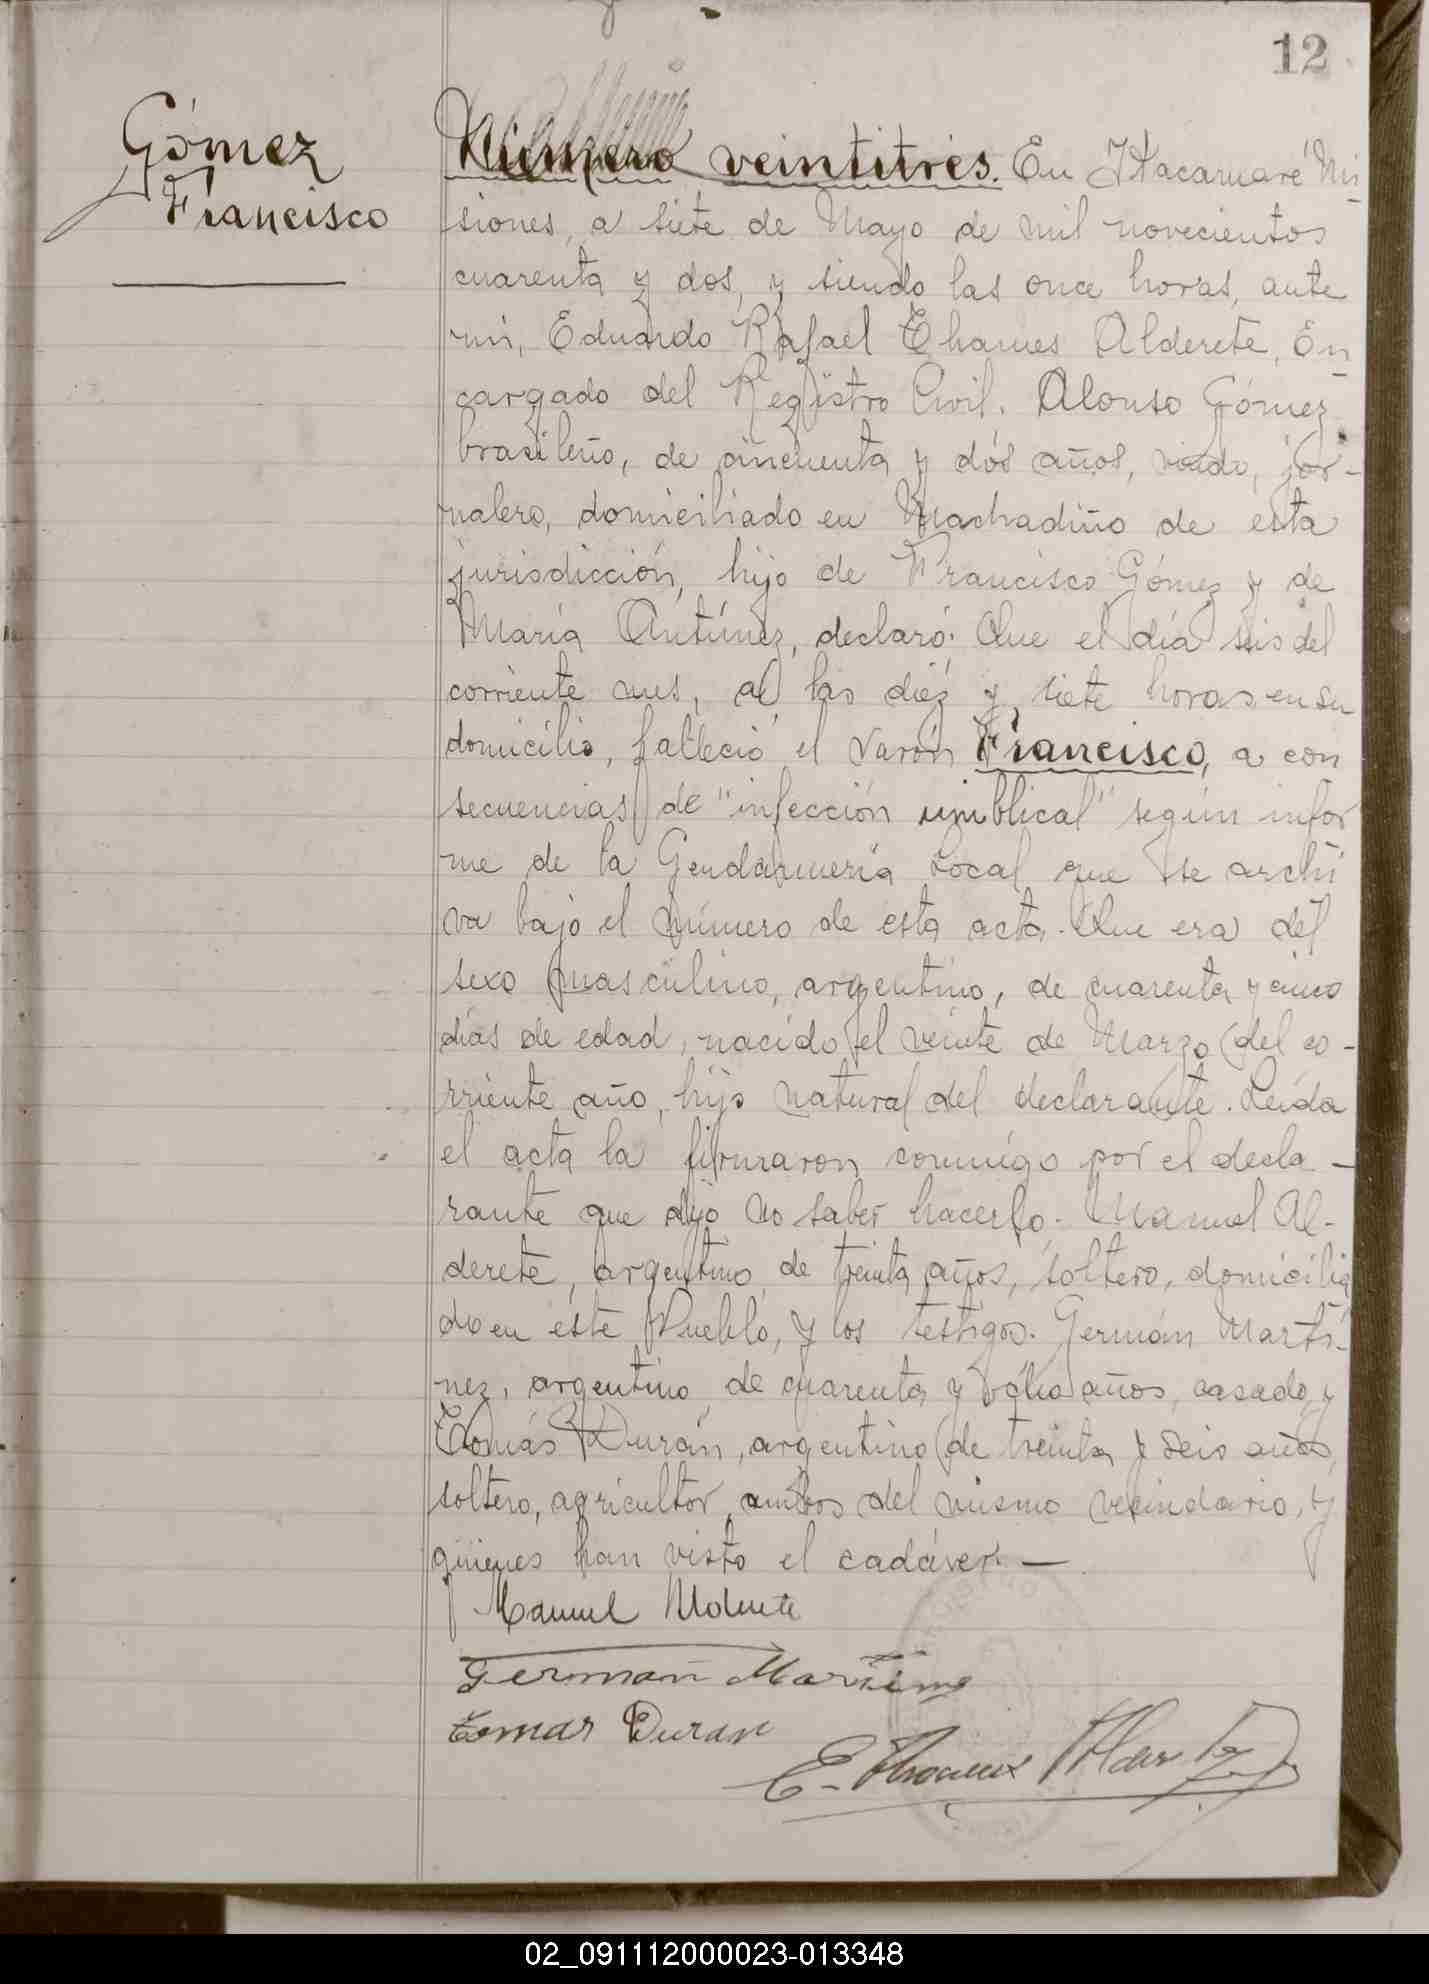 12
Gómez
Francisco
Número veintitrés. En Itacaruaré Mi
siones, a siete de Mayo de mil novecientos
cuarenta y dos, y siendo las once horas, ante
mi, Eduardo Rafael Thames Alderete, En
cargado del Registro Civil. Alonso Gómez
brasileño, de cincuenta y dós años, viudo, jor-
nalero, domiciliado en Machadiño de esta
jurisdicción, hijo de Francisco Gómez y de
María Antúnez, declaró: Que el día seis del
corriente mes, a las diez y siete horas en su
domicilio, falleció el varón Francisco, a con
secuencias de "infección umblical" según infor
me de la Gendarmería Local que se archi
va bajo el número de esta acta. Que era del
sexo masculino, argentino, de cuarenta y cinco
días de edad, nacido el veinte de Marzo del co-
rriente año, hijo natural del declarante. Leída
el acta la firmaron conmigo por el decla-
rante que dijo no saber hacerlo. Manuel Al-
derete, argentino de treinta años, soltero, domicilia
do en éste Pueblo, y los testigos. Germán Martí-
nez, argentino de cuarenta y ocho años, casado, y
Tomás Durán, argentino de treinta y seis años,
soltero, agricultor, ambos del mismo vecindario, y
quienes han visto el cadáver. —
Manuel Alderete
German Martinez
Tomas Duran
E. Thames Alderete
02_091112000023-013348